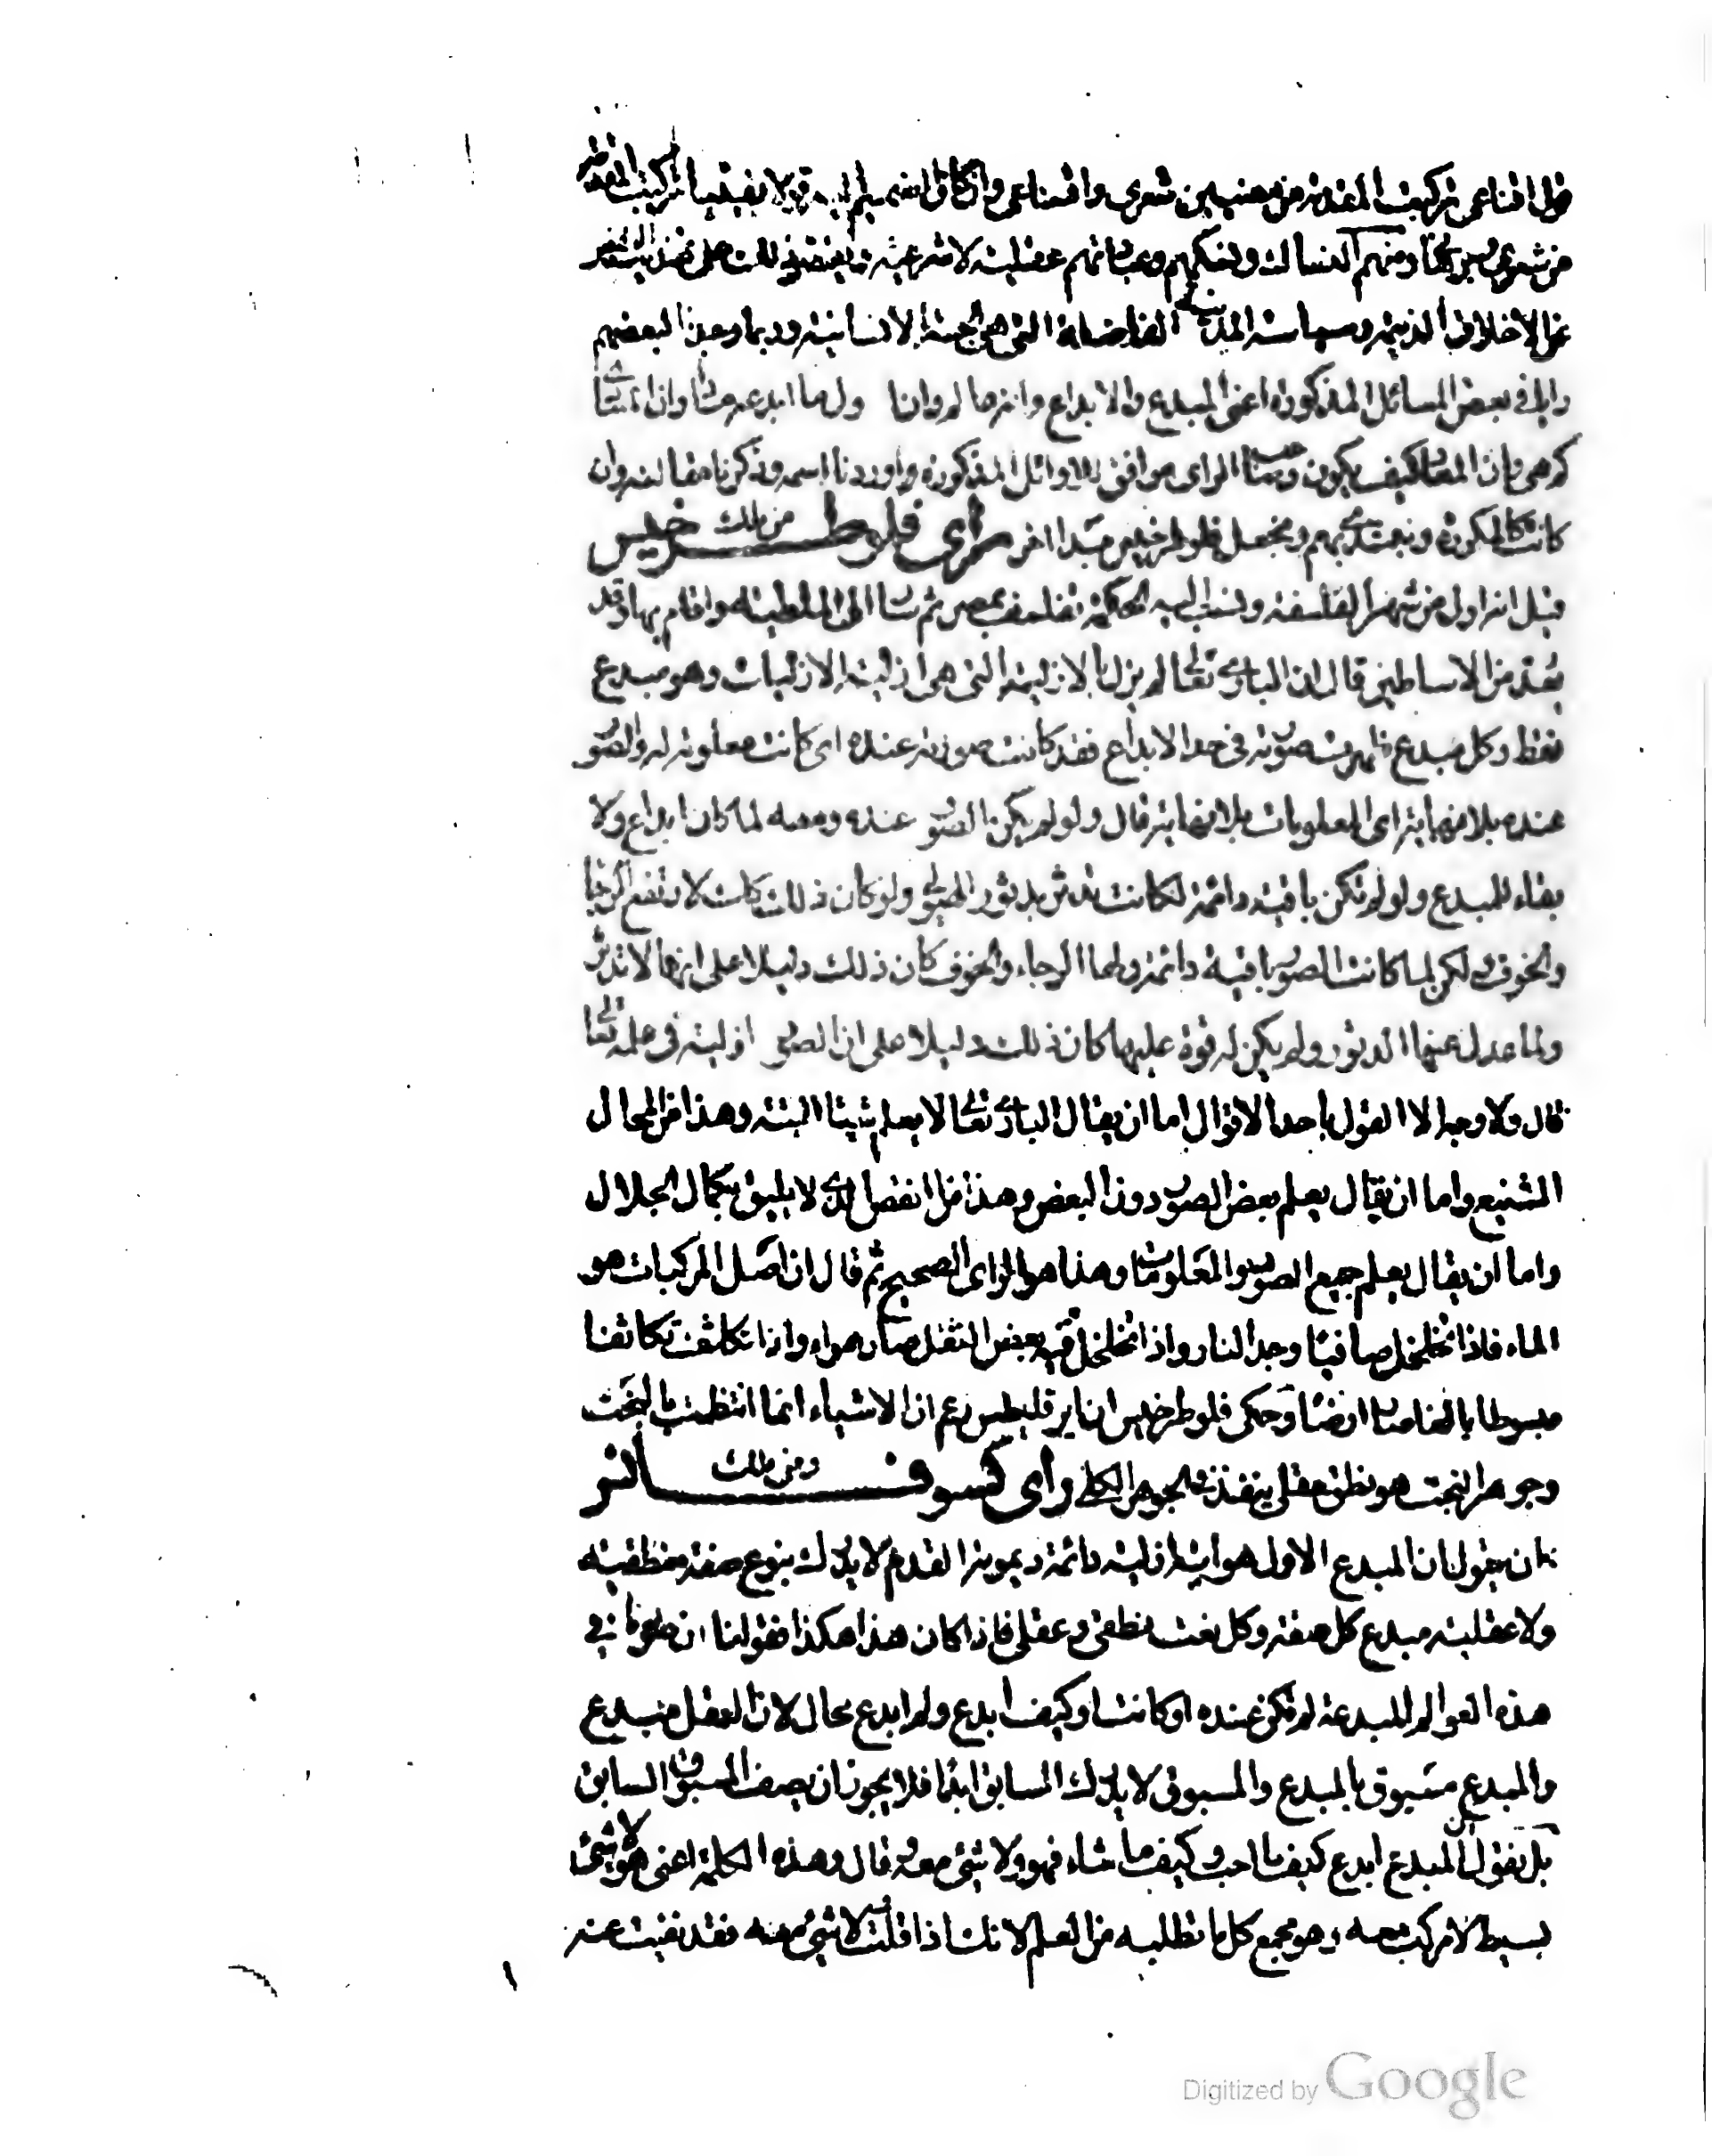 من شعري ومنهم النساك ونسكهم وعباداتهم عقلية لا شرعية ويقتضي ذلك على تهذيب النفس
عن الاخلاق الذميمة وسياسة المدينة الفاضلة التي هي الجثة الانسانية وربما وجدنا لبعضهم
رايا في بعض المسائل المذكورة اعني المبدع والابداع وانه عالم وان اول ما ابدعه ماذا وان المبادي
كم هي وان المعاد كيف يكون وصاحب الراي موافق للاوائل المذكورة اوردنا اسمه وذكرنا مقالته وان
كانت كالمكررة ونبتدئ بهم ونجعل فلوطرخيس مبدأ اخر راي فلوطرخيس من ذلك
قيل انه اول من شهر بالفلسفة ونسب اليه الحكمة تفلسف بمصر ثم سار الى الملطية واقام بها وقد
يعد من الاساطين قال ان الباري تعالى لم يزل بالازلية التي هي ازلية الازليات وهو مبدع
فقط وكل مبدع ظهرت صورته في حد الابداع فقد كانت صورته عنده اي كانت معلومة له والصور
عنده بلا نهاية اي المعلومات بلا نهاية قال ولو لم يكن الصور عنده ومعه لما كان ابداع ولا
بقاء للمبدع ولو لم تكن باقية دائمة لكانت تدثر بدثور الهيولى ولو كان ذلك كذلك لارتفع الرجا
والخوف ولكن لما كانت الصور باقية دائمة ولها الرجاء والخوف كان ذلك دليلا على انها لا تدثر
ولما عدل عنها الدثور ولم يكن له قوة عليها كان ذلك دليلا على ان الصور ازلية في علمه تعالى
قال ولا وجه الا القول باحد الاقوال اما ان يقال الباري تعالى لا يعلم شيئا البتة وهذا من المحال
الشنيع واما ان يقال يعلم بعض الصور دون البعض وهذا من النقص الذي لا يليق بكمال الجلال
واما ان يقال يعلم جميع الصور والمعلومات وهذا هو الراي الصحيح ثم قال ان اصل المركبات هو
الماء فاذا تخلخل صافيا وجد النار واذا تخلخل وفيه بعض الثقل صار هواء واذا تكاثفت تكاثفا
مبسوطا بالغا صار ارضا وحكى فلوطرخيس ان ايرقليطس زعم ان الاشياء انما انتظمت بالبخت
وجوهر البخت هو نطق عقلي ينفذ في الجوهر الكلي راي كسوفانس ومن ذلك
كان يقول ان المبدع الاول هو انية ازلية دائمة ديمومة القدم لا يدرك بنوع صفة منطقية
ولا عقلية مبدع كل صفة وكل نعت نطقي وعقلي فاذا كان هذا هكذا فقولنا ان صورنا في
هذه العوالم المبدعة لم تكن عنده او كانت او كيف ابدع ولم ابدع محال لان العقل مبدع
والمبدع مسبوق بالمبدع والمسبوق لا يدرك السابق ابدا فلا يجوز ان يصف المسبوق السابق
بل نقول ان المبدع ابدع كيف ما احب وكيف ما شاء فهو هو ولا شئ معه قال وهذه الكلمة اعني هو ولا شئ
بسيط لا مركب معه وهو مجمع كل ما نطلبه من العلم لانك اذا قلت ولا شئ معه فقد نفيت عنه
Digitized by Google